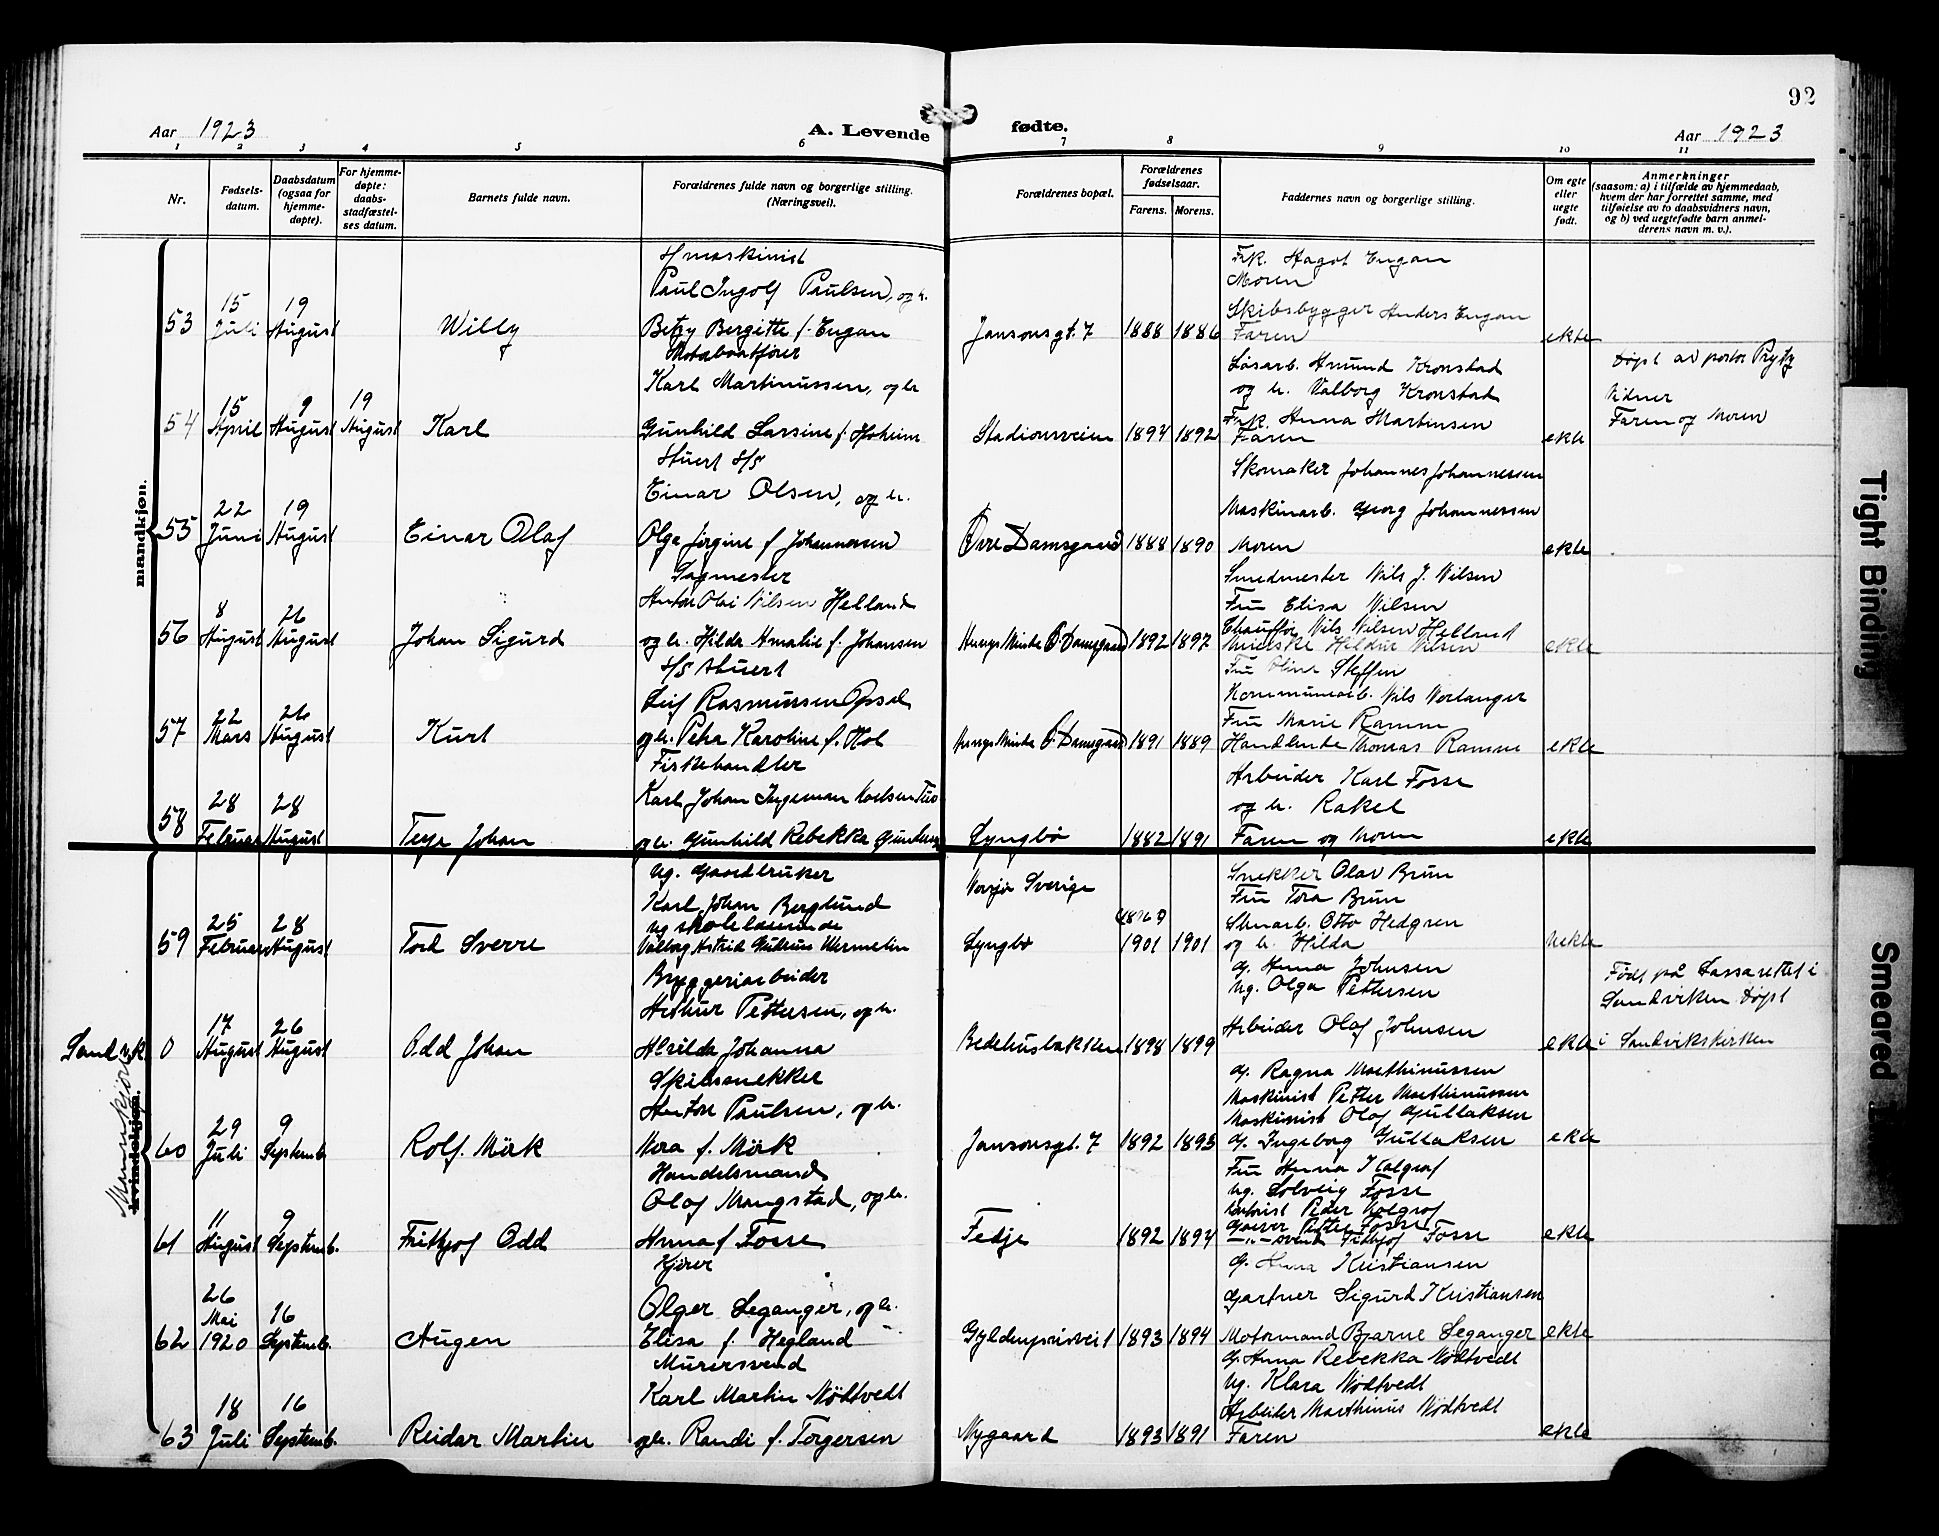 92
Aar 1923
A. Levende fødte.
Aar 1923
1 2 3 4 5 6 7 8 9 10 11
Nr.
Fødsels-
datum.
Daabsdatum
(ogsaa for
hjemme-
døpte).
For hjemme-
døpte:
daabs-
stadfæstel-
ses datum.
Barnets fulde navn.
Forældrenes fulde navn og borgerlige stilling.
(Næringsvei).
Forældrenes bopæl.
Forældrenes
fødselsaar.
Farens. Morens.
Faddernes navn og borgerlige stilling.
Om egte
eller
uegte
født.
Anmerkninger
(saasom: a) i tilfælde av hjemmedaab,
hvem der har forrettet samme, med
tilføielse av to daabsvidners navn,
og b) ved uegtefødte barn anmel-
derens navn m. v.).
mandkjøn.
53
15
Juli
19
August
Willy
maskinist
Paul Ingolf Paulsen, og h.
Betzy Bergitte f. Engan
Jansonsgt. 7
1888 1886
Frk. Hagot Engan
Moren
Skibsbygger Anders Engan
Faren
ekte
54
15
April
9
August
19
August
Karl
Motorbaatfører
Karl Martinussen, og h.
Gunhild Larsine f.
Stadionsveien
1894 1892
Løsarb. Amund Kronstad
og h. Valborg Kronstad
Frk. Anna Martinsen
Faren
ekte
Døpt av pastor
Vidner
Faren og Moren
55
22
Juni
19
August
Einar Olaf
Stuert S/S
Einar Olsen, og h.
Olga Jørgine f. Johannessen
Øvre Damsgaard
1888 1890
Skomaker Johannes Johannessen
Maskinarb. Georg Johannessen
Moren
ekte
56
8
August
26
August
Johan Sigurd
Sagmester
Anton Olai Nilsen Helland
og h. Hilda Amalie f. Johansen
Minde Ø. Damsgaard
1892 1897
Smedmester Nils J. Nilsen
Fru Elisa Nilsen
Chauffør Nils Nilsen Helland
Nilsen
ekte
57
22
Mars
26
August
Kurt
S/S Stuert
Leif Rasmussen Opsal
og h. Petra Karoline f. Hol
Minde Ø. Damsgaard
1891 1889
Fru Oline Steffen
Kommunearb. Nils Norlanger
Fru Marie Ramm
Thomas Ramm
ekte
58
28
Februar
28
August
Terje Johan
Fiskehandler
Karl Johan Ingeman
og h. Gunhild Rebekka
Lyngbø
1882 1891
Arbeider Karl Fosse
og h. Rakel
Faren og Moren
ekte
kvindekjøn.
Mannkjøn
59
25
Februar
28
August
Tord Sverre
Ug. Gaardbruker
Karl Johan Berglund
Ug.
Valborg Astrid Gudrun
Sverige
Lyngbø
1901 1901
Snekker Olav Brun
Fru Tora Brun
Otto Hedgren
og h. Hilda
Uekte
Sandvik.
0
17
August
26
August
Odd Johan
Bryggeriarbeider
Arthur Pettersen, og h.
Alvilda Johanna
Bedehusbakken
1898 1899
G. Anna Johnsen
Ug. Olga Pettersen
Arbeider Olaf Johnsen
ekte
Født på Lassarettet i
Sandviken Døpt
i Sandvikskirken
60
29
Juli
9
Septemb.
Rolf Mörk
Skibssnekker
Anton Paulsen, og h.
Nora f. Mörk
Jansonsgt. 7
1892 1893
G. Ragna Marthinussen
Maskinist Petter Marthinussen
Maskinist Olaf Gullaksen
G. Ingeborg Gullaksen
ekte
61
11
August
9
Septemb.
Fritjof Odd
Handelsmand
Olaf Mangstad, og h.
Anna f. Fosse
Fedje
1892 1894
Fru Anna Kalgraf
Ug. Solveig Fosse
Peder Kalgraf
Petter Fosse
Fritjof Fosse
ekte
62
26
Mai
1920
16
Septemb.
Augen
Kjører
Olger Leganger, og h.
Elisa f. Hegland
Gyldenprisveit
1893 1894
G. Anna Kristiansen
Gartner Sigurd Kristiansen
Motormand Bjarne Leganger
ekte
63
18
Juli
16
Septemb.
Reidar Martin
Murersvend
Karl Martin Nödtvedt
og h. Randi f. Torgersen
Nygaard
1893 1891
G. Anna Rebekka Nödtvedt
Ug. Klara Nödtvedt
Arbeider Marthinus Nödtvedt
Faren
ekte
Tight Binding
Smeared